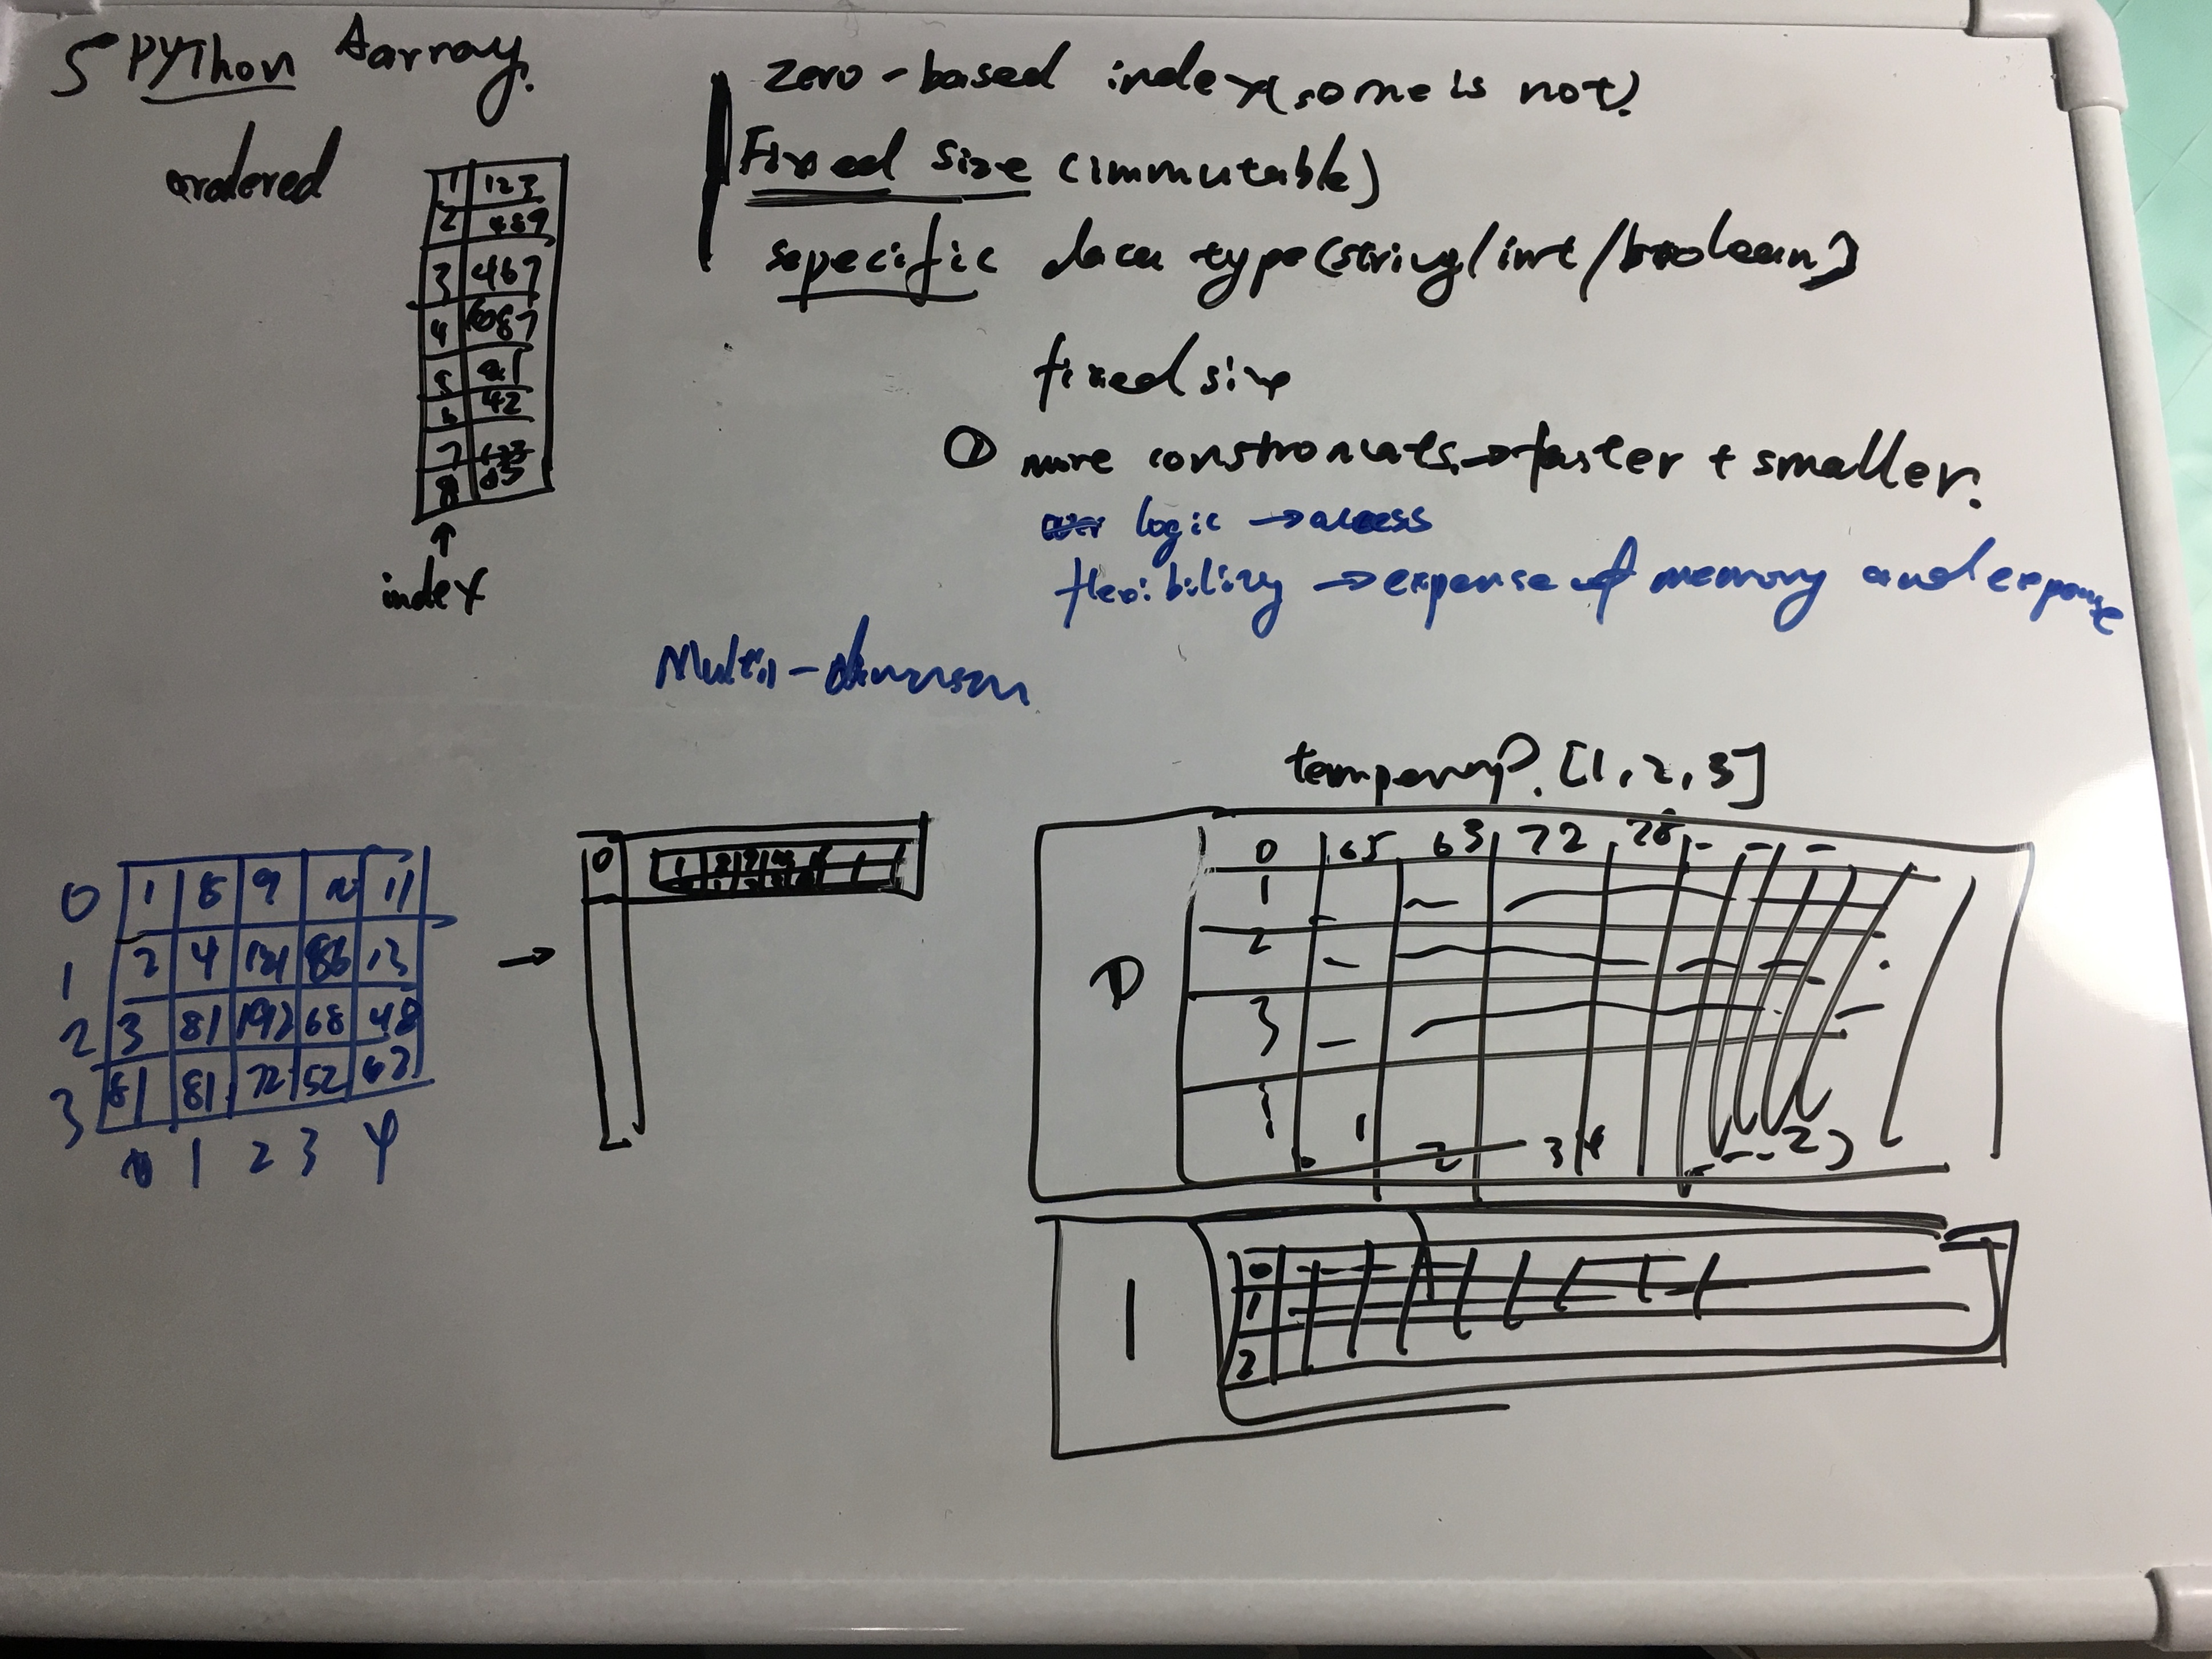 5 PYThon Aarray.
ordered
1 123
2 489
3 467
4
5
6 42
7
8
index
zero-based index (some is not)
Fixed Size (immutable)
sepecific data type (string/int/boolean)
fixed size
① more constroncats → faster + smaller.
logic → access
flexibility → expense of memory and expense
Multi-dimension
0 1 8 9 10 11
1 2 4 86 13
2 3 81 192 68 48
3 81 81 72 52 67
0 1 2 3 4
→
0
[1, 2, 3]
0
0 65 63 72 78 - - -
1
2
3
1 2 3 4
1
0
1
2